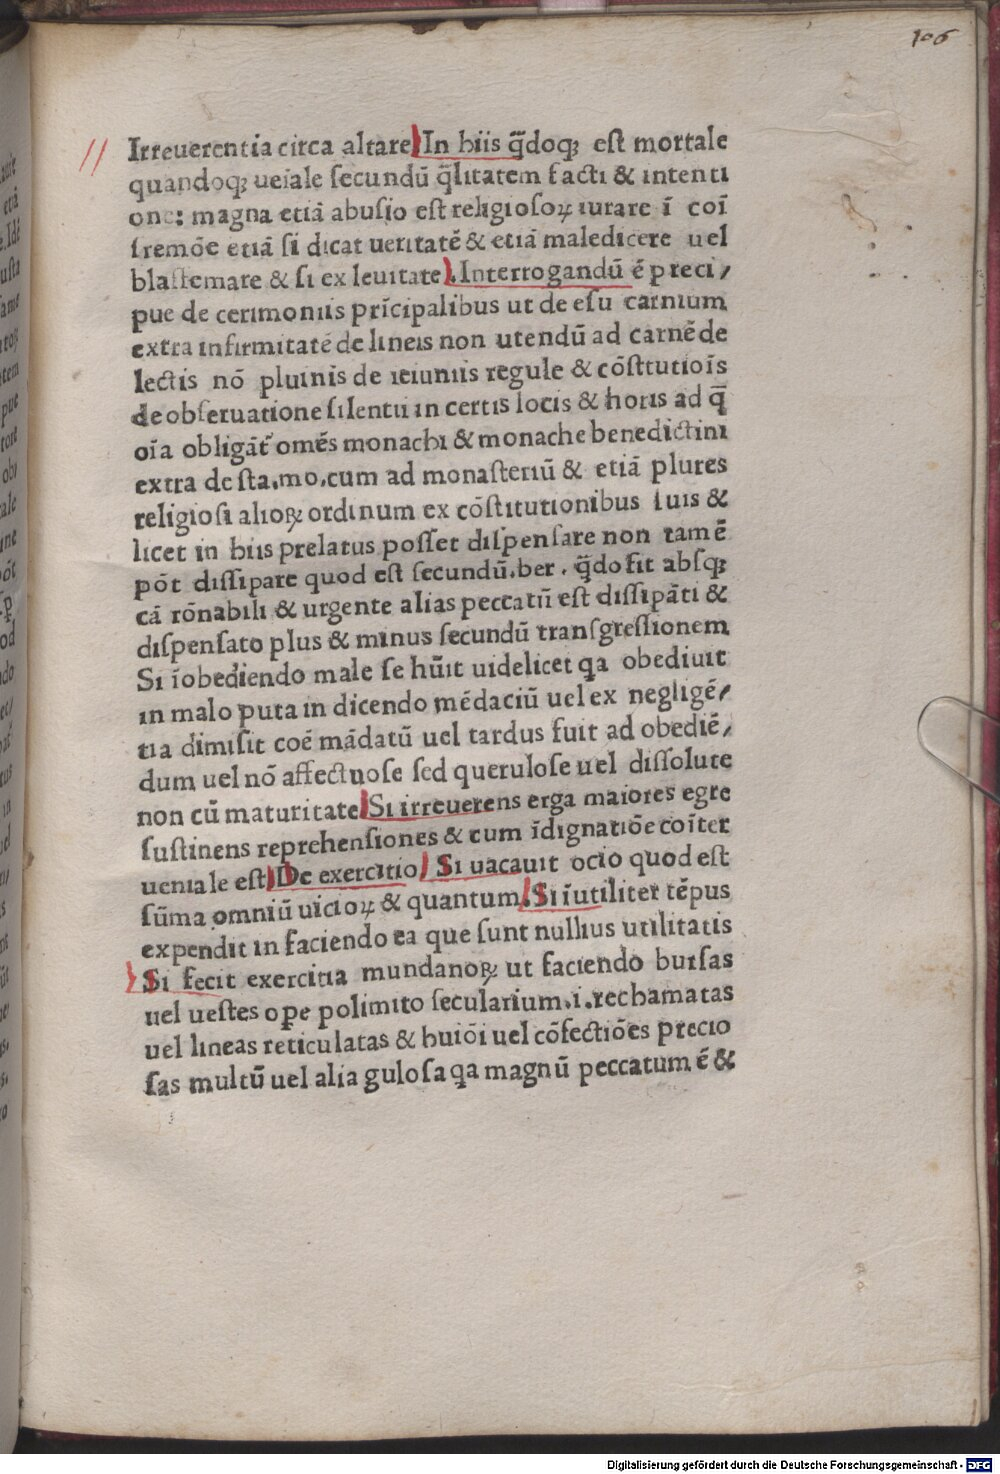 106
Irreuerentia circa altare In hiis q̃doqꝫ est mortale
quandoqꝫ ueiale secundũ q̃litatem facti & intenti
one: magna etiã abusio est religiosoꝝ iurare ĩ coĩ
sremõe etiã si dicat ueritatẽ & etiã maledicere uel
blasfemare & si ex leuitate. Interrogandũ ẽ preci/
pue de cerimoniis prĩcipalibus ut de esu carnium
extra infirmitatẽ de lineis non utendũ ad carnẽ de
lectis nõ pluinis de ieiuniis regule & cõsttutiõis
de obseruatione silentii in certis locis & horis ad q̃
oĩa obligãt᷑ omẽs monachi & monache benedictini
extra de sta.mo.cum ad monasteriũ & etiã plures
religiosi alioꝝ ordinum ex cõstitutionibus suis &
licet in hiis prelatus posset dispensare non tamẽ
põt dissipare quod est secundũ.ber. q̃do fit absqꝫ
cã rõnabili & urgente alias peccatũ est dissipãti &
dispensato plus & minus secundũ transgressionem
Si ĩobediendo male se hũit uidelicet qa obediuit
in malo puta in dicendo mẽdaciũ uel ex negligẽ/
tia dimisit coẽ mãdatũ uel tardus fuit ad obediẽ/
dum uel nõ affectuose sed querulose uel dissolute
non cũ maturitate Si irreuerens erga maiores egre
sustinens reprehensiones & cum ĩdignatiõe coĩter
ueniale est De exercitio Si uacauit ocio quod est
sũma omniũ uicioꝝ & quantum. Si ĩutiliter tẽpus
expendit in faciendo ea que sunt nullius utilitatis
Si fecit exercitia mundanoꝝ ut faciendo bursas
uel uestes ope polimito secularium.i.rechamatas
uel lineas reticulatas & huiõi uel cõfectiões precio
sas multũ uel alia gulosa qa magnũ peccatum ẽ &
Digitalisierung gefördert durch die Deutsche Forschungsgemeinschaft - DFG